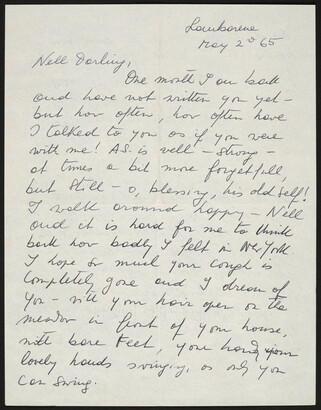 Lambarene
May 2d 65
Nell Darling,
One month I am back
and have not written you yet -
but how often, how often have
I talked to you as if you were
with me! A.S. is well - strong -
at times a bit more forgetful,
but still - o, blessing, his old self!
I walk around happy - Nell
and it is hard for me to think
back how badly I felt in New York
I hope so much your cough is
completely gone and I dream of
you - with your hair open on the
meadow in front of your house,
with bare feet, your hands your
lovely hands swinging, as only you
can swing.